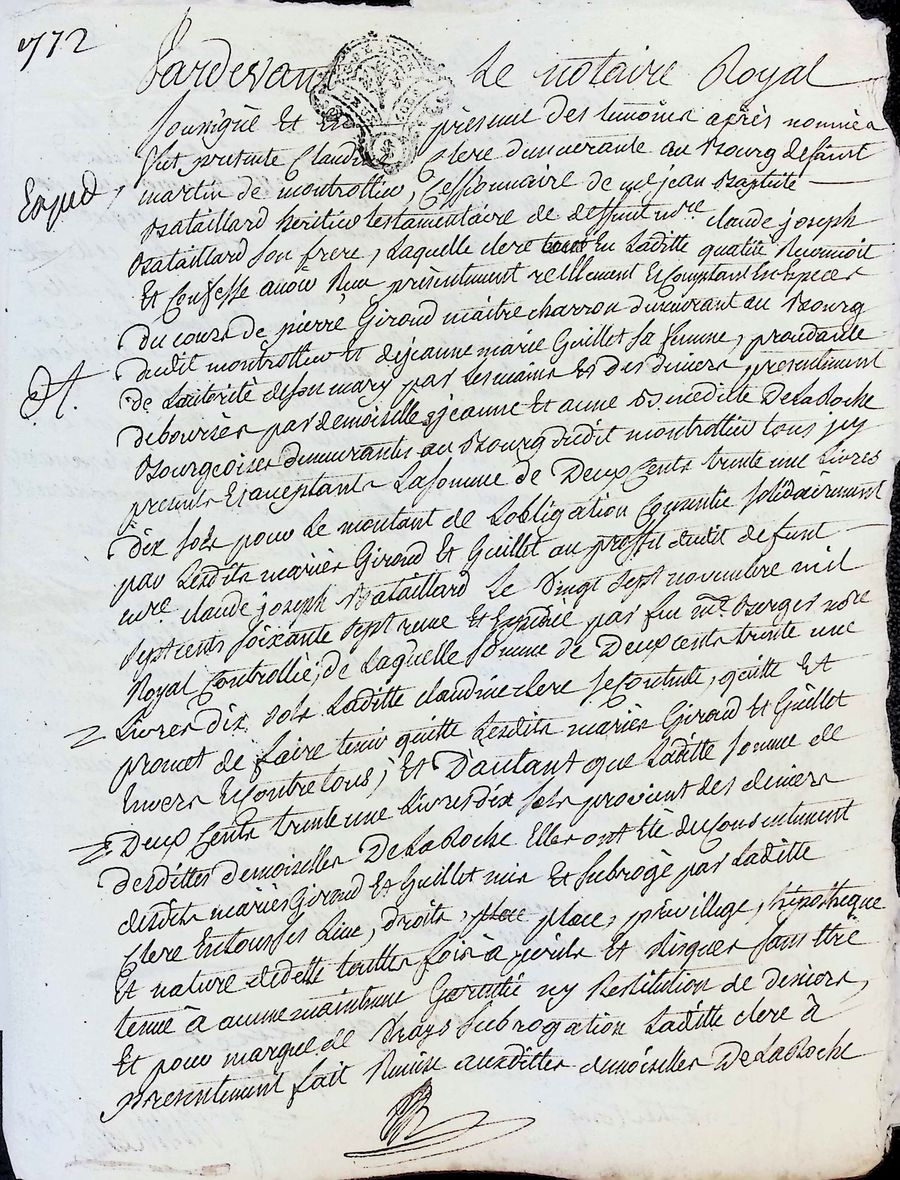 1772
Pardevant Le notaire Royal
soussigné Et En présence des témoins après nommés
fut presente Claudine Clere demeurante au Bourg de saint
martin de montrottier, Cessionnaire de me jean Baptiste
Expéd
Bataillard héritier testamentaire de deffunt mre claude joseph
Bataillard son frere, Laquelle clere En Laditte qualité Reconnoit
Et Confesse avoir Reçu présentement réellement Et Comptant En Especes
du cours de pierre Giroud maitre charron demeurant au Bourg
dudit montrottier et de jeanne marie Guillet sa femme, procedante
de Lautorité de son mary par les mains Et des deniers présentement
deboursés par demoiselles jeanne Et anne Beneditte De La Roche
Bourgeoises demeurantes au Bourg dudit montrottier tous icy
presents Et acceptants La somme de Deux Cents trente une Livres
dix sols pour Le montant de Lobligation Consentie solidairement
par Lesdits mariés Giroud Et Guillet au proffit dudit defunt
mre. claude joseph Bataillard Le Vingt sept novembre mil
sept cents soixante sept reçue Et Expediée par feu me. Borges nore
Royal Controllée; de Laquelle somme de Deux cents trente une
Livres dix sols Laditte claudine clere se Contente, quitte Et
promet de faire tenir quitte Lesdits mariés Giroud Et Guillet
Envers Et Contre tous; Et D'autant que Laditte somme de
Deux Cents trente une Livres dix sols provient des deniers
desdittes demoiselles De La Roche Elles ont Eté du Consentement
desdits mariés Giroud Et Guillet mis Et subrogé par Laditte
Clere En tous ses Lieu, droits, place, privillege, hipotheque
Et nature de dette touttes fois à périls Et risques sans Etre
tenue à aucune maintenue Garentie ny Restitution de deniers,
Et pour marque de Vraye subrogation Laditte clere à
présentement fait Remise auxdittes demoiselles De La Roche